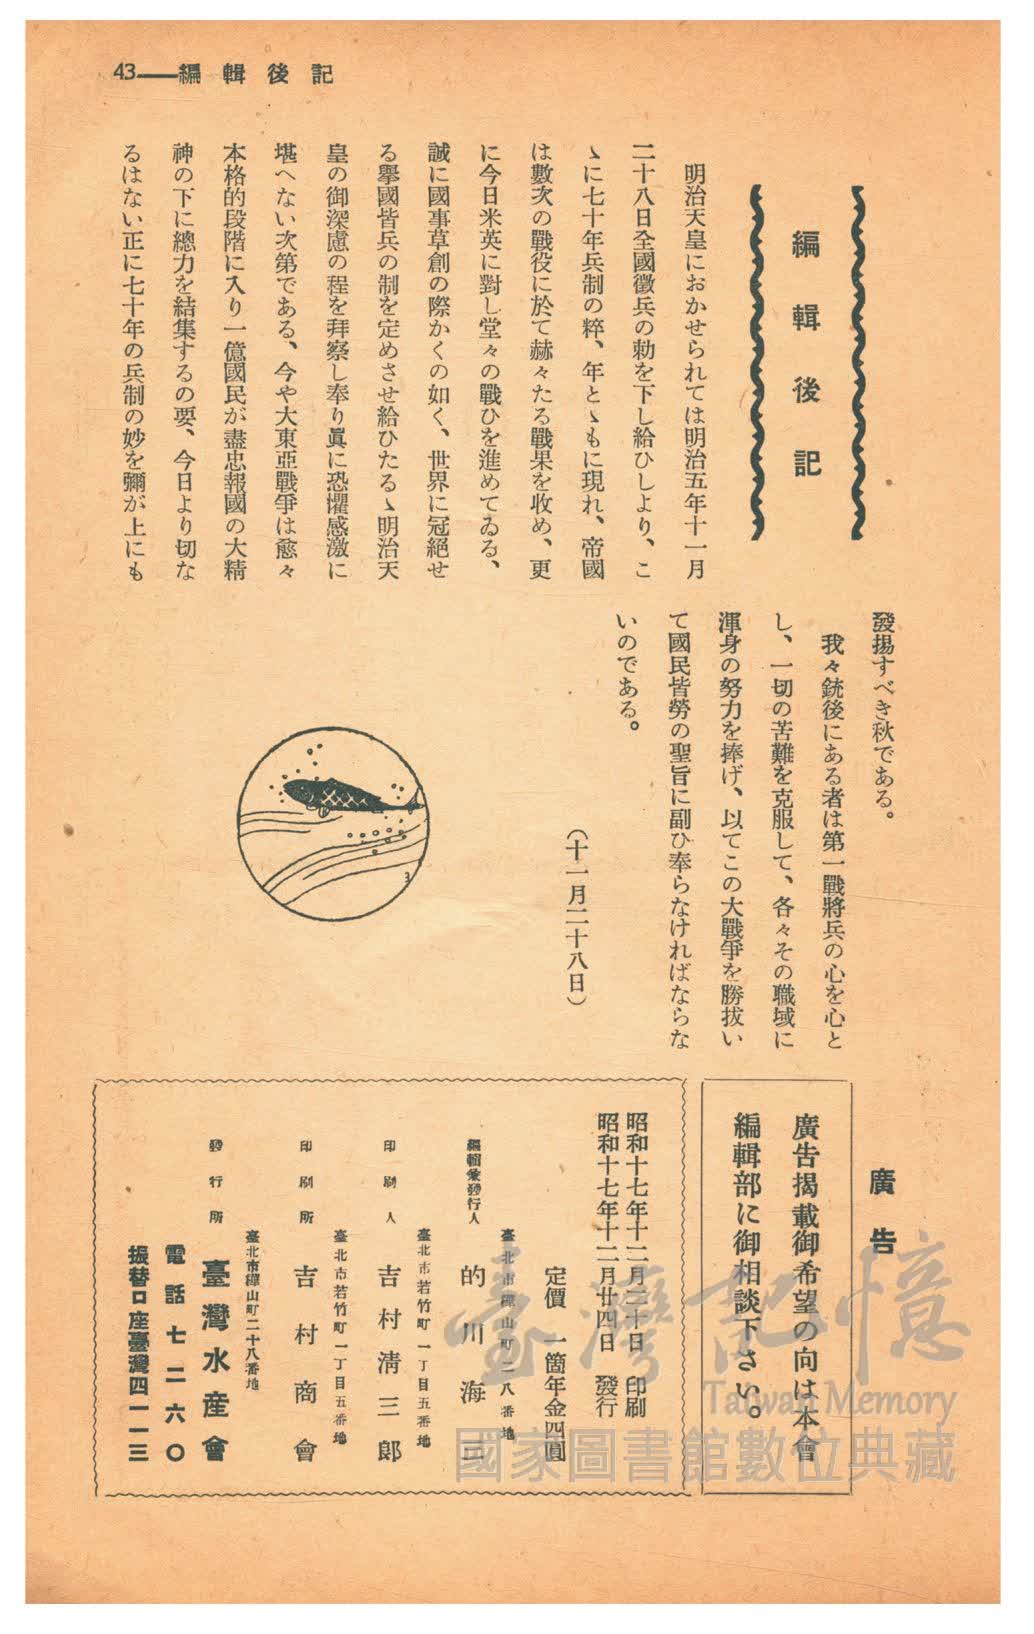 43——編輯後記
編輯後記
明治天皇におかせられては明治五年十一月
二十八日全國徵兵の勅を下し給ひしより、こ
ゝに七十年兵制の粹、年とゝもに現れ、帝國
は數次の戰役に於て赫々たる戰果を收め、更
に今日米英に對し堂々の戰ひを進めてゐる、
誠に國事草創の際かくの如く、世界に冠絕せ
る擧國皆兵の制を定めさせ給ひたるゝ明治天
皇の御深慮の程を拜察し奉り眞に恐懼感激に
堪へない次第である、今や大東亞戰爭は愈々
本格的段階に入り一億國民が盡忠報國の大精
神の下に總力を結集するの要、今日より切な
るはない正に七十年の兵制の妙を彌が上にも
發揚すべき秋である。
我々銃後にある者は第一戰將兵の心を心と
し、一切の苦難を克服して、各々その職域に
渾身の努力を捧げ、以てこの大戰爭を勝拔い
て國民皆勞の聖旨に副ひ奉らなければならな
いのである。
（十一月二十八日）
廣告
廣告揭載御希望の向は本會
編輯部に御相談下さい。
昭和十七年十二月二十日 印刷
昭和十七年十二月廿四日 發行
定價 一箇年金四圓
臺北市樺山町二八番地
編輯兼發行人 的川海三
臺北市若竹町一丁目五番地
印刷人 吉村淸三郎
臺北市若竹町一丁目五番地
印刷所 吉村商會
臺北市樺山町二十八番地
發行所 臺灣水產會
電話七二六〇
振替口座臺灣四一一三
臺灣記憶
Taiwan Memory
國家圖書館數位典藏